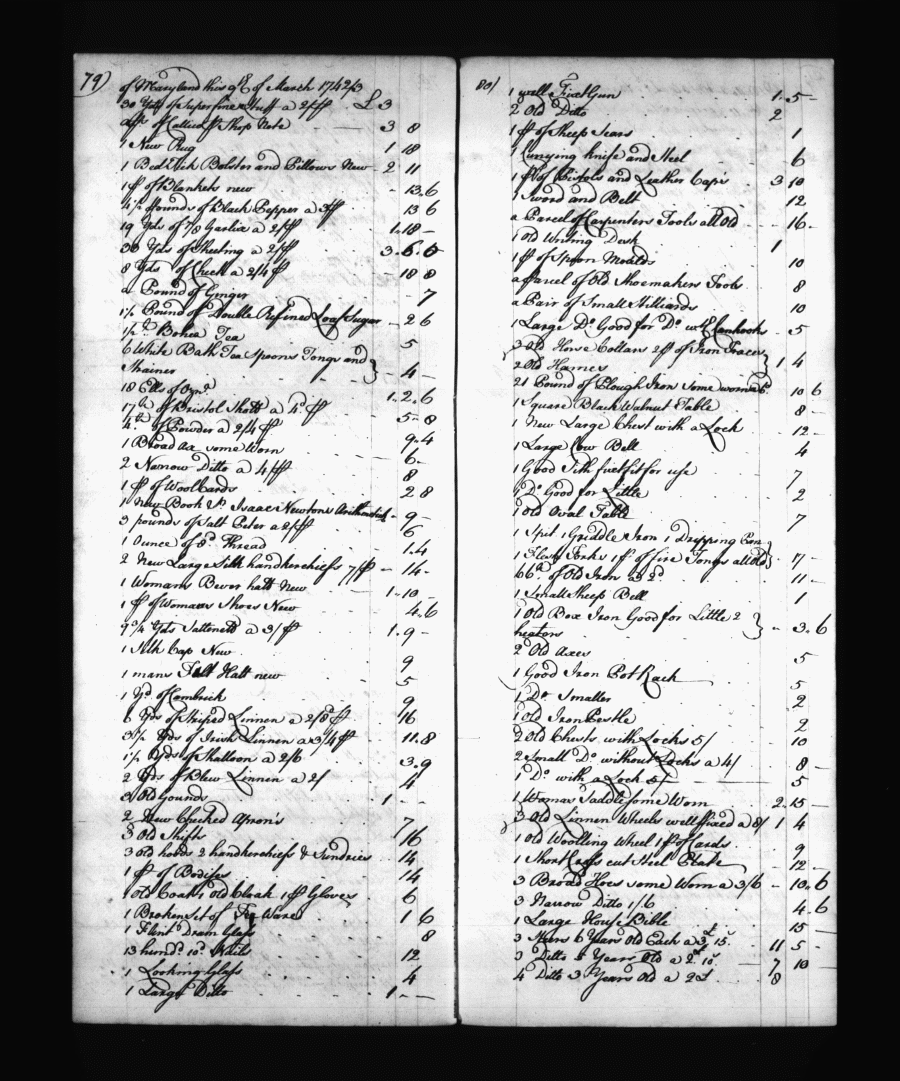 79)
of Maryland this 9th of March 1742/3
30 Yds of Superfine Stuff a 2/ P £ 3
of Shop Note 3 8
1 New Rug 1. 18
1 Bed Tick Bolster and Pillows New 2 11
1 pr of Blankets new 13.6
4½ Pounds of Black Pepper a 3/ P 13 6
19 Yds of 7/8 Garlix a 2/ P 1.18 -
30 Yds of Sheeting a 2/ P 3. 0. 0
8 Yds of Check a 2/4 P 18 8
a Pound of Ginger 7
1½ Pound of Double Refined Loaf Sugar 2 6
1/2 lb Bohea Tea 5
6 White Bath Tea Spoons Tongs and }
Strainer 4 -
18 Ells of Ozn. 1. 2. 6
17 lb of Bristol Shott a 4d P 5 - 8
4 lb of Powder a 2/4 P 9. 4
1 Broad ax some Worn 6 -
2 Narrow Ditto a 4/ P 8
1 pr of Wool Cards 2 8
1 New Book Sr. Isaac Newtons Arithmetick 9 -
3 pounds of Salt Peter a 2/ P 6
1 Ounce of Thread 1. 4
2 New Large Silk handkerchiefs 7/ P 14 -
1 Womans Bever hatt New 1. 10 -
1 pr of Womans Shoes New 4. 6
9¾ Yds Sattenett a 3/ P 1. 9 -
1 Silk Cap New 9
1 mans Felt Hatt new 5
1 Yd of Cambrick 9
6 Yds of Striped Linnen a 2/8 P 16
3½ Yds of Irish Linnen a 3/4 P 11. 8
1½ Yds of Shalloon a 2/6 3. 9
2 Yds of Blew Linnen a 2/ 4
3 Old Gounds 1 - -
2 New Checked Apron's 7
3 Old Shifts 16
3 old hoods 2 handkerchiefs & Sundries 14
1 pr of Bodises 14
1 Old Coat 1 old Cloak 1 pr Gloves 6
1 Broken set of Tea Ware 1 6
1 Flint Dram Glass 8
13 hundd. 10d. Nails 12
1 Looking Glass 4
1 Large Ditto 1 - -
80)
1 well Fixt Gun 1. 5 -
2 Old Ditto 2
1 pr of Sheep Sears 1
1 knife and Steel 6
1 pr of Pistols and Leather Caps 3 10
1 Sword and Belt 12
a Parcel of Carpenters Tools all Old 16 -
1 Old Writing Desk 1
1 pr of Spoon Moulds 10
a Parcel of Old Shoemakers Tools 8
a Pair of Small Stilliards 10
1 Large Do. Good for Do. 5
3 Old Horse Collars 2 pr of Iron Traces }
2 Old Hames 1 4
21 Pound of Plough Iron some worn 10 6
1 Square Black Walnut Table 8 -
1 New Large Chest with a Lock 12 -
1 Large Cow Bell 4
1 Good Sith fixt fit for use 7
1 Do. Good for Little 2
1 Old Oval Table 7
1 Spit 1 Griddle Iron 1 Dripping Pan }
1 Flesh Forks 1 pr of fire Tongs all Old 17 -
66 lb. of Old Iron a 2d 11 -
1 Small Sheep Bell 1
1 Old Box Iron Good for Little 2 }
heaters 3. 6
2 Old Axes 5
1 Good Iron Pot Rack 5
1 Do Smaller 2
1 Old Iron Pestle 2
2 Old Chests with Locks 5/ 10
2 Small Do. without Locks a 4/ 8 -
1 Do. with a Lock 5/ 5
1 Womans Saddle some Worn 2. 15 -
3 Old Linnen Wheels well fixed a 8/ 1 4
1 Old Woolling Wheel 1 pr of Cards 9
1 Short Cross cut Steel Plate 12 -
3 Broad Hoes some Worn a 3/6 10. 6
3 Narrow Ditto 1/6 4. 6
1 Large House Bible 15 -
3 Steers 6 Years Old Each a 3£ 15s. 11 5 -
3 Ditto 4 Years Old a 2£ 10s 7 10 -
4 Ditto 3 Years Old a 2£ 8